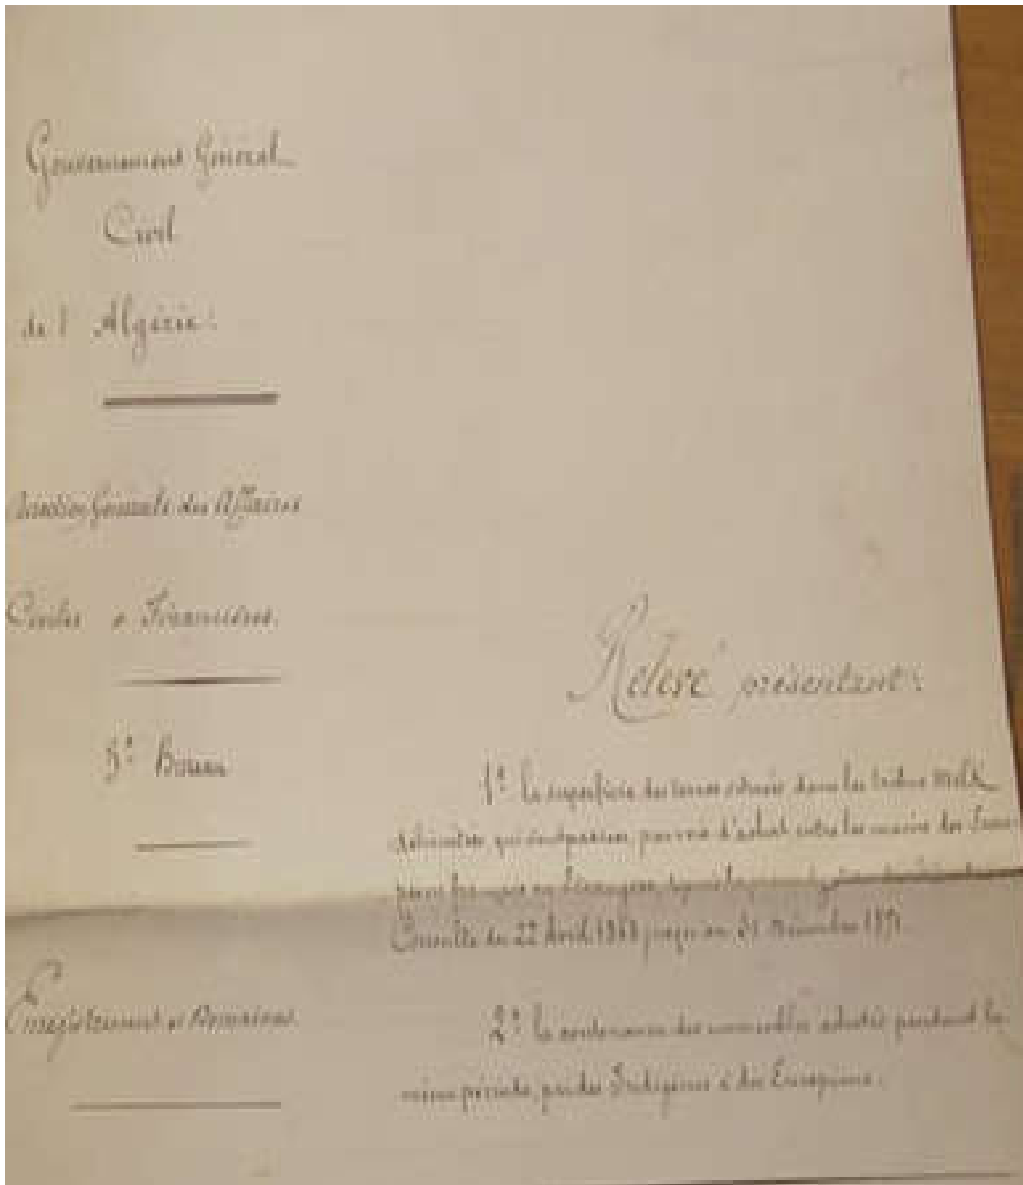 Gouvernement Général
Civil
de l'Algérie.
Direction Générale des Affaires
Civiles et Financières.
5e Bureau
Enregistrement et Domaines.
Relevé présentant:
1° la superficie des terres situées dans les tribus
délimitées qui sont passées, par voie d'achat entre les mains des
français ou Étrangers,
Consulte du 22 Avril 1863 jusqu'au 31 Décembre 1871
2° la contenance des immeubles achetés pendant la
même période, par des Indigènes à des Européens.